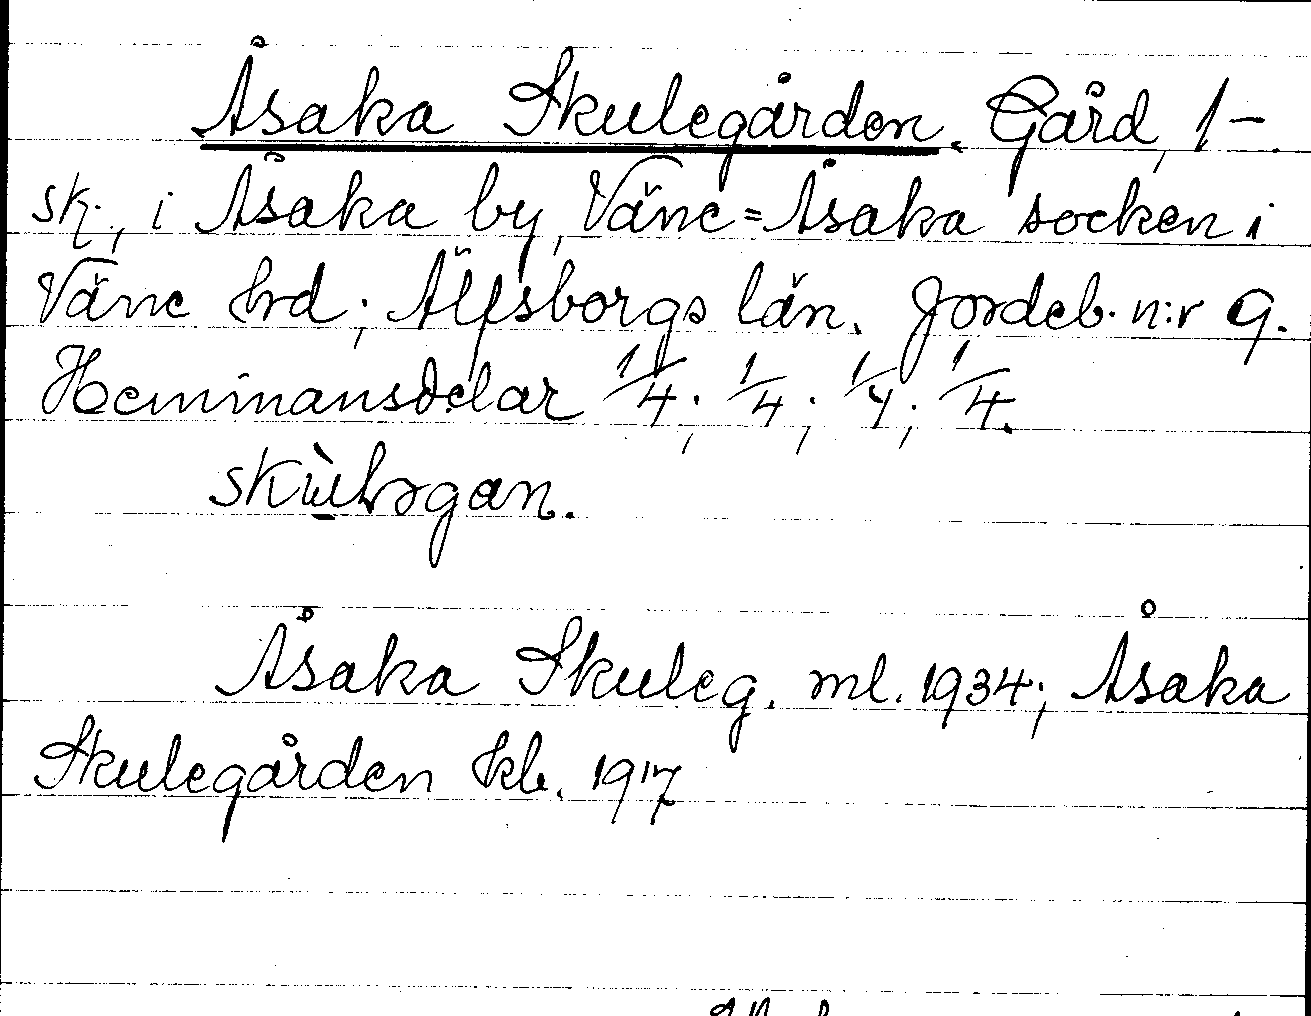 Åsaka Skulegården. Gård, 1-
sk., i Åsaka by, Väne=Åsaka socken i
Väne hrd; Älfsborgs län. Jordeb. n:r 9.
Hemmansdelar 1/4; 1/4; 1/4; 1/4.
Åsaka Skuleg. ml. 1934; Åsaka
Skulegården kb. 1917